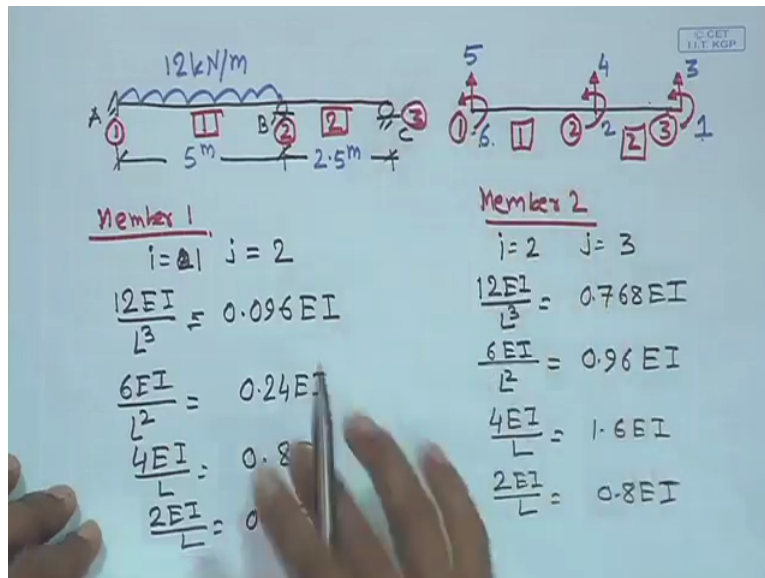 © CET
I.I.T. KGP
12kN/m
5 4 3
A 1 1 B 2 2 C 3
1 6. 1 2 2 2 3 1
5m 2.5m
Member 1
i=1 j=2
12EI/L³ = 0.096EI
6EI/L² = 0.24EI
4EI/L = 0.8
2EI/L = 0
Member 2
i=2 j=3
12EI/L³ = 0.768EI
6EI/L² = 0.96EI
4EI/L = 1.6EI
2EI/L = 0.8EI